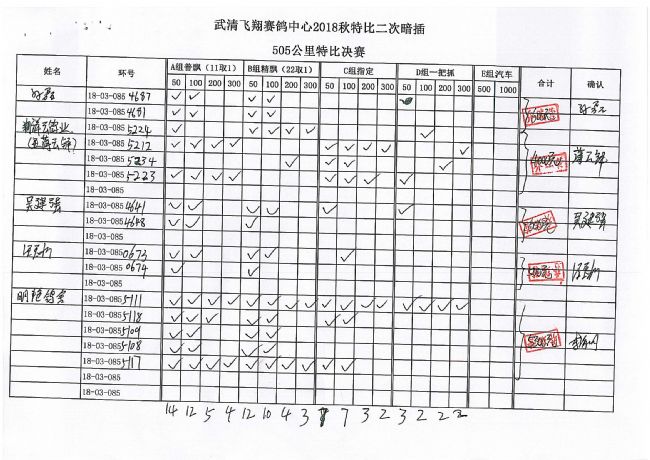 武清飞翔赛鸽中心2018秋特比二次暗插
505公里特比决赛
姓名 环号 A组普飘（11取1） B组精飘（22取1） C组指定 D组一把抓 E组汽车 合计 确认
50 100 200 300 50 100 200 300 50 100 200 300 50 100 200 300 500 1000
18-03-085 4687 ✓ ✓ ✓ ✓
18-03-085 4691 ✓ ✓ ✓ ✓
18-03-085 5224 ✓ ✓ ✓ ✓ ✓ ✓
18-03-085 5212 ✓ ✓ ✓ ✓ ✓ ✓ ✓ ✓ ✓
18-03-085 5234 ✓ ✓ ✓
18-03-085 5223 ✓ ✓ ✓ ✓ ✓ ✓ ✓ ✓
18-03-085
吴建强 18-03-085 4641 ✓ ✓ ✓ ✓ ✓ ✓ 吴建强
18-03-085 4648 ✓ ✓ ✓
18-03-085
18-03-085 0673 ✓ ✓ ✓ ✓ ✓
18-03-085 0674 ✓ ✓
18-03-085
18-03-085 5111 ✓ ✓ ✓ ✓ ✓ ✓ ✓ ✓ ✓ ✓ ✓ ✓ ✓ ✓ ✓ ✓
18-03-085 5118 ✓ ✓ ✓ ✓ ✓ ✓ ✓
18-03-085 5109 ✓ ✓ ✓ ✓
18-03-085 5108 ✓ ✓ ✓ ✓
18-03-085 5117 ✓ ✓ ✓ ✓ ✓ ✓ ✓ ✓ ✓ ✓
18-03-085
18-03-085
14 12 5 4 12 10 4 3 7 3 2 3 2 2 2